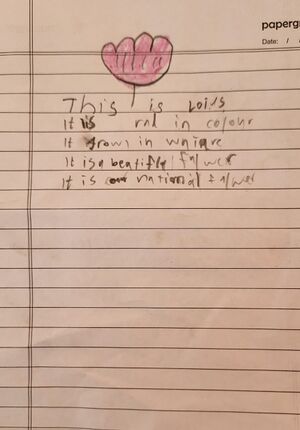 papergr
Date: / /
This is Loius
It is red in colour
It grows in waiare
It is a beatiflu/ fn/wer
It is our national fn/wer